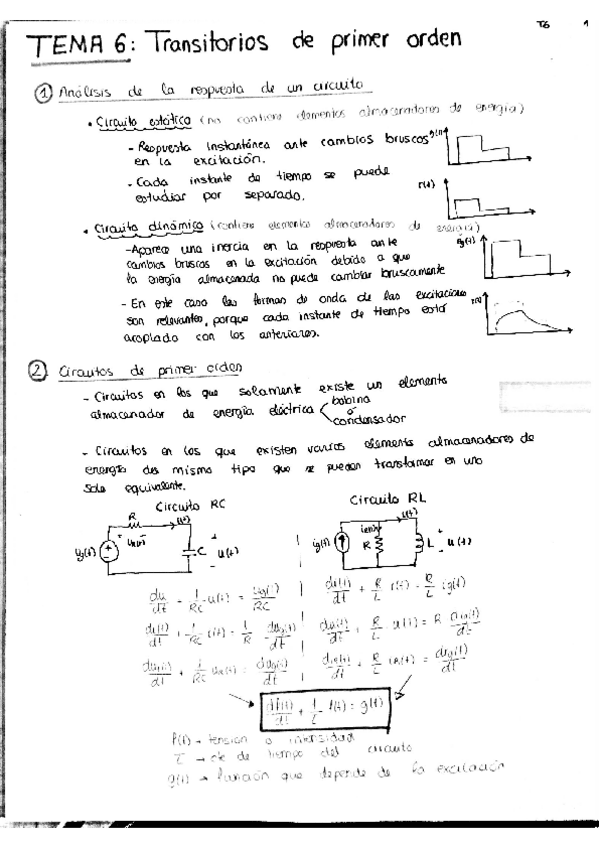 T6 1
TEMA 6: Transitorios de primer orden
① Análisis de la respuesta de un circuito
• Circuito estático (no contiene elementos almacenadores de energía)
- Respuesta instantánea ante cambios bruscos
en la excitación.
- Cada instante de tiempo se puede
estudiar por separado.
r(t)
• Circuito dinámico (contiene elementos almacenadores de energía)
- Aparece una inercia en la respuesta ante
cambios bruscos en la excitación debido a que
la energía almacenada no puede cambiar bruscamente
- En este caso las formas de onda de las excitaciones
son relevantes, porque cada instante de tiempo está
acoplado con los anteriores.
② Circuitos de primer orden
- Circuitos en los que solamente existe un elemento
almacenador de energía eléctrica < bobina
ó
condensador
- Circuitos en los que existen varios elementos almacenadores de
energía del mismo tipo que se pueden transformar en uno
solo equivalente.
Circuito RC Circuito RL
R i(t)
ug(t) C u(t)
ig(t) R L u(t)
du/dt + 1/RC u(t) = ug(t)/RC
di(t)/dt + R/L i(t) = R/L ig(t)
di(t)/dt + 1/RC i(t) = 1/R dug(t)/dt
du(t)/dt + R/L u(t) = R dig(t)/dt
df(t)/dt + 1/τ f(t) = g(t)
f(t) → tensión o intensidad
τ → cte de tiempo del circuito
g(t) → función que depende de la excitación